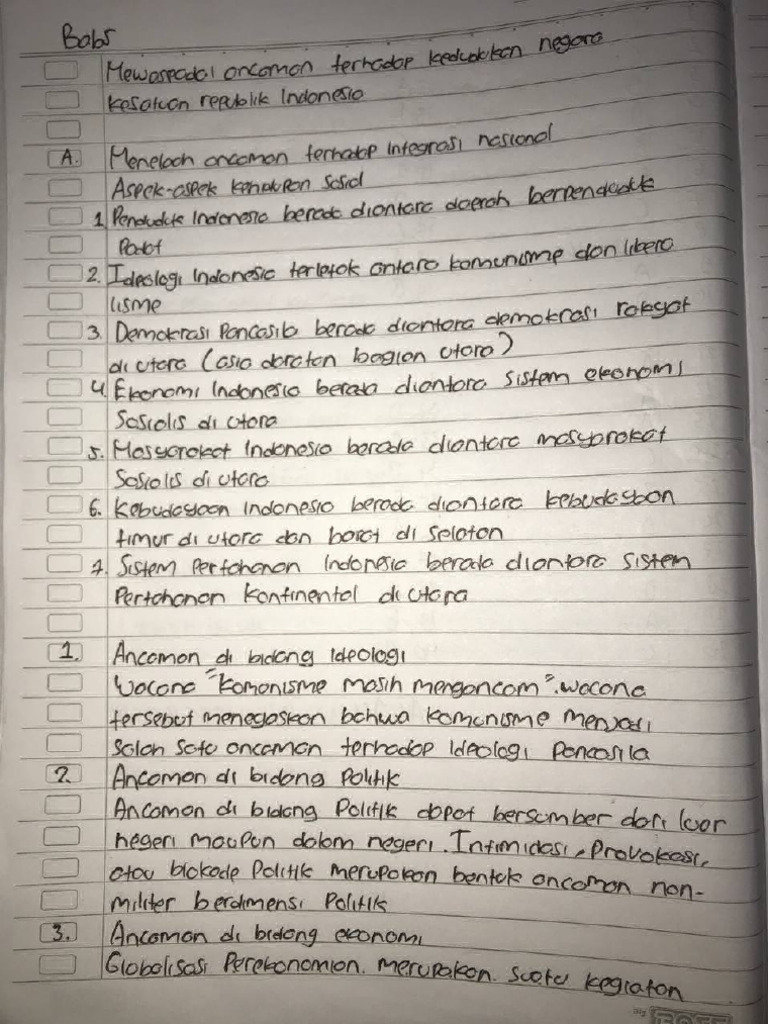 Bab5
Mewaspadai ancaman terhadap kedudukan negara
kesatuan republik Indonesia
A. Menelaah ancaman terhadap integrasi nasional
Aspek-aspek kehidupan sosial
1. Penduduk Indonesia berada diantara daerah berpenduduk
Padat
2. Ideologi Indonesia terletak antara komunisme dan libera
lisme
3. Demokrasi Pancasila berada diantara demokrasi rakyat
di utara (asia daratan bagian utara)
4. Ekonomi Indonesia berada diantara sistem ekonomi
Sosialis di utara
5. Masyarakat Indonesia berada diantara masyarakat
Sosialis di utara
6. Kebudayaan Indonesia berada diantara kebudayaan
timur di utara dan barat di selatan
7. Sistem Pertahanan Indonesia berada diantara sistem
Pertahanan Kontinental di utara
1. Ancaman di bidang Ideologi
Wacana "Komunisme masih mengancam". wacana
tersebut menegaskan bahwa komunisme menjadi
salah satu ancaman terhadap Ideologi Pancasila
2. Ancaman di bidang Politik
Ancaman di bidang Politik dapat bersumber dari luar
negeri maupun dalam negeri. Intimidasi, Provokasi,
atau blokade Politik merupakan bentuk ancaman non-
militer berdimensi Politik
3. Ancaman di bidang ekonomi
Globalisasi Perekonomian. merupakan. suatu kegiatan